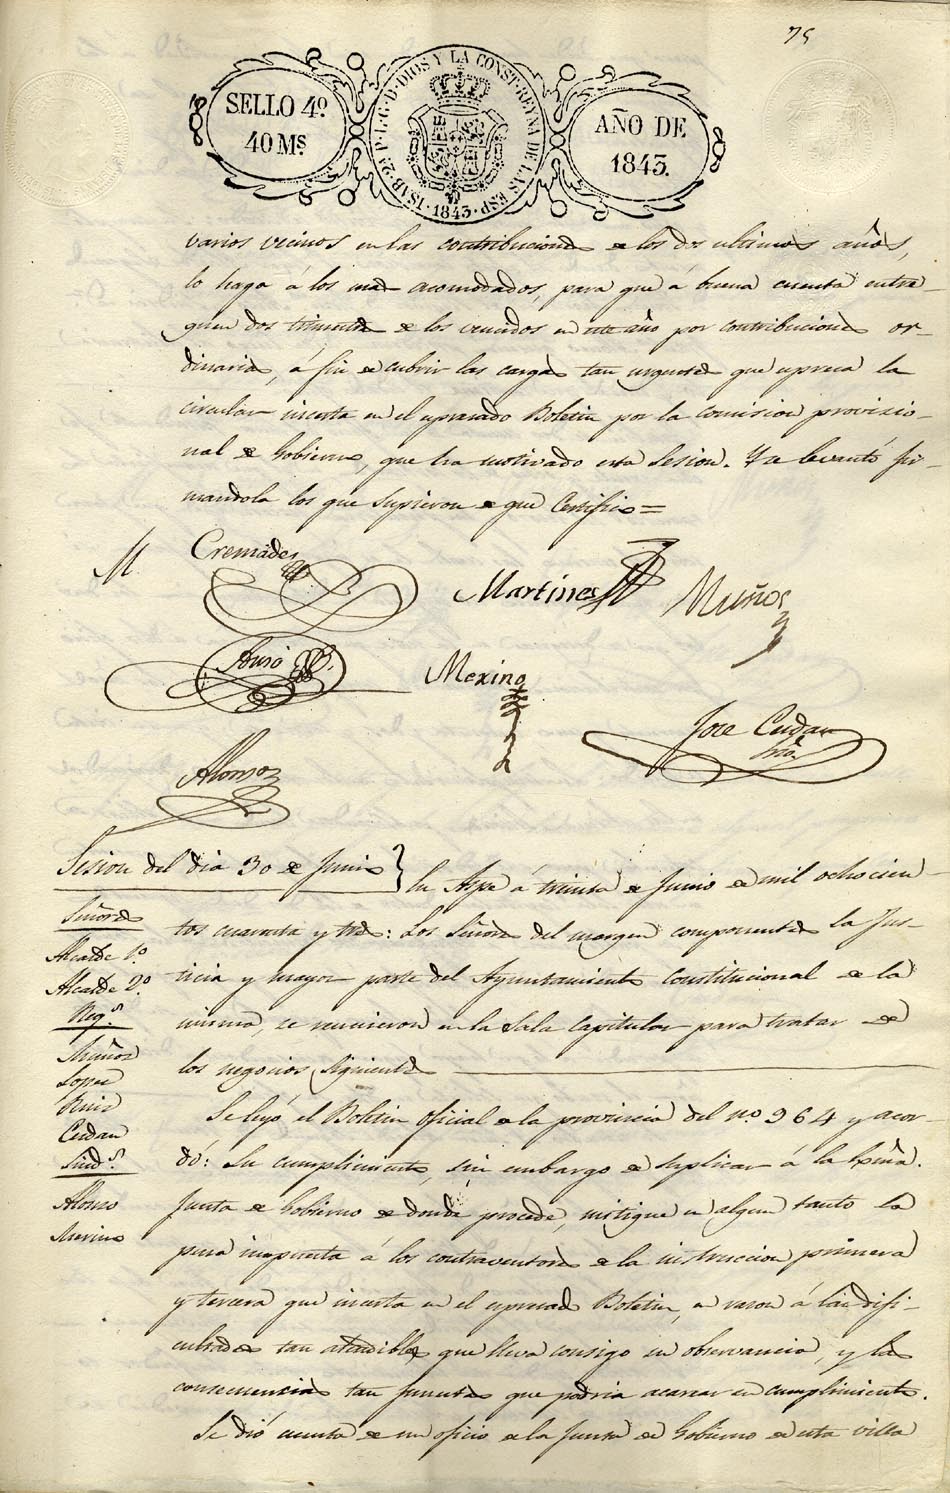 75
SELLO 4º.
40 Ms.
ISAB. 2ª P. L. G. D. DIOS Y LA CONST. REYNA DE LAS ESP.
1843
AÑO DE
1843.
varios vecinos en las contribuciones de los dos ultimos años,
lo haga á los mas acomodados, para que á buena cuenta entre-
guen dos trimestres de los vencidos en este año por contribuciones or-
dinarias, á fin de cubrir las cargas tan urgentes que expresa la
circular inserta en el expresado Boletin por la comision provisio-
nal de Gobierno, que ha motivado esta Sesion. Y se levantó fir-
mandola los que supieron de que Certifico =
M
Cremades
Martines
Muños
Merino
Jose Cerdan
Srio.
Alonso
Sesion del dia 30 de Junio
Señores
Alcalde 1º.
Alcalde 2º.
Reg.s
Muñoz
Lopez
Ruiz
Cerdan
Sind.s
Alonso
Merino
En Aspe á treinta de Junio de mil ochocien-
tos cuarenta y tres: Los Señores del margen componentes la Jus-
ticia y mayor parte del Ayuntamiento Constitucional de la
misma, se reunieron en la Sala Capitular para tratar de
los negocios siguientes
Se leyó el Boletin oficial de la provincia del nº. 964 y acor-
dó: Su cumplimiento, sin embargo de suplicar á la Exma.
Junta de Gobierno de donde procede, mitigue en algun tanto la
pena impuesta á los contraventores de la instruccion primera
y tercera que inserta en el expresado Boletin, en razon á las difi-
cultades tan atendibles que lleva consigo su observancia, y las
consecuencias tan funestas que podria acarrear su cumplimiento.
Se dió cuenta de un oficio de la Junta de Gobierno de esta villa